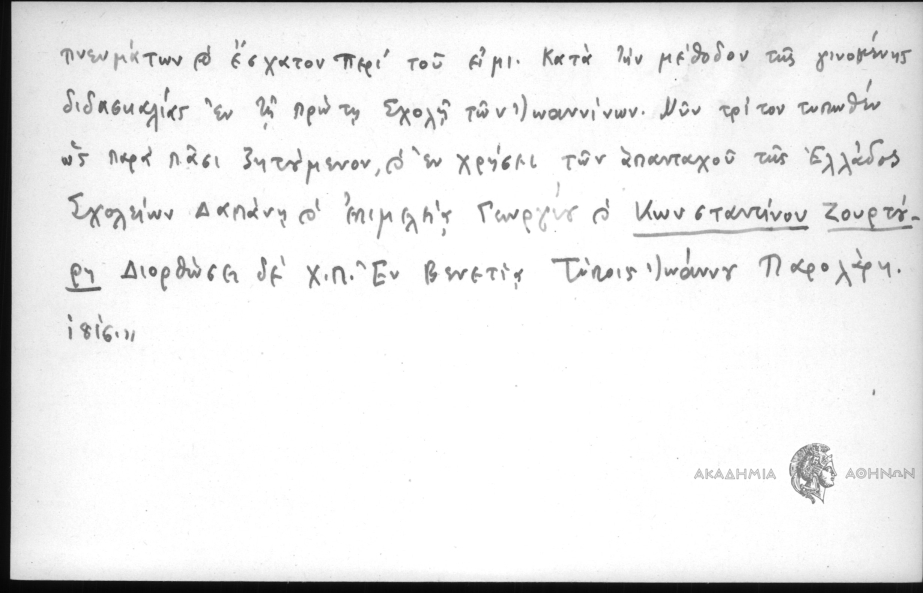 πνευμάτων καὶ ἔσχατον Περὶ τοῦ εἰμι. Κατὰ τὴν μέθοδον τῆς γινομένης
διδασκαλίας ἐν τῇ πρώτῃ Σχολῇ τῶν Ἰωαννίνων. Νῦν τρίτον τυπωθὲν
ὡς παρὰ πᾶσι ζητούμενον, καὶ ἐν χρήσει τῶν ἁπανταχοῦ τῆς Ἑλλάδος
Σχολείων Δαπάνῃ καὶ ἐπιμελείᾳ Γεωργίου καὶ Κωνσταντίνου Ζουρτού-
ρη Διορθώσει δὲ Χ.Π. Ἐν Βενετίᾳ Τύποις Ἰωάννου Παρολάρη.
ΑΚΑΔΗΜΙΑ ΑΘΗΝΩΝ